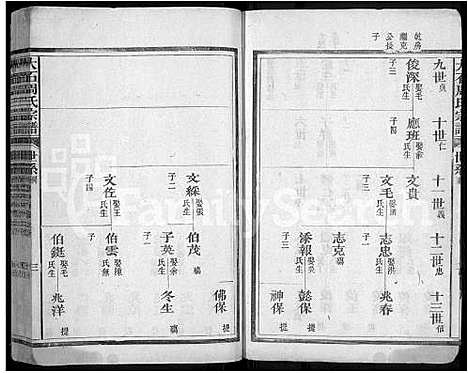 九世貞
十世仁
十一世義
十二世忠
十三世信
乾房
繼克
公長
子
俊深
娶毛
氏生
子三
應班
娶余
氏生
子四
文貴
文毛
氏生
子二
志忠
娶洪
氏生
兆春
提
志克
添報
娶余
氏生
彭保
神保
提
文綵
娶張
氏生
子二
伯茂
子英
氏生
子一
冬生
佛保
提
文佐
娶王
氏生
子四
伯雲
娶陳
氏無
伯鋌
娶毛
氏生
兆洋
提
大石周氏宗譜
世系
三
FamilySearch